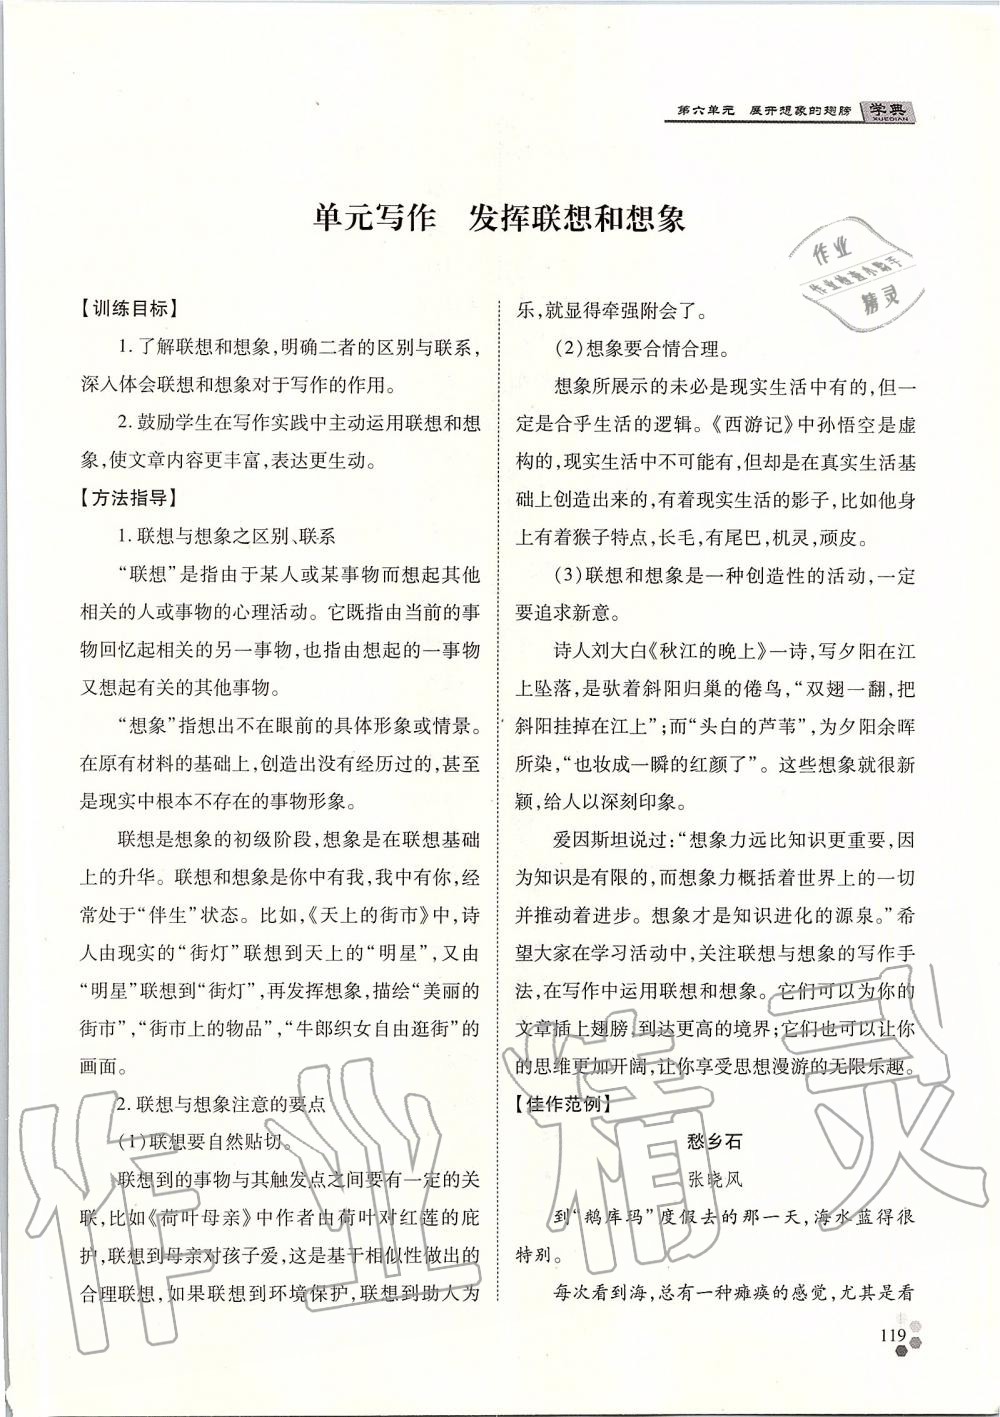 第六单元 展开想象的翅膀
学典
XUEDIAN
单元写作 发挥联想和想象
作业
作业检查小助手
精灵
【训练目标】
1. 了解联想和想象,明确二者的区别与联系,
深入体会联想和想象对于写作的作用。
2. 鼓励学生在写作实践中主动运用联想和想
象,使文章内容更丰富,表达更生动。
【方法指导】
1. 联想与想象之区别、联系
“联想”是指由于某人或某事物而想起其他
相关的人或事物的心理活动。它既指由当前的事
物回忆起相关的另一事物,也指由想起的一事物
又想起有关的其他事物。
“想象”指想出不在眼前的具体形象或情景。
在原有材料的基础上,创造出没有经历过的,甚至
是现实中根本不存在的事物形象。
联想是想象的初级阶段,想象是在联想基础
上的升华。联想和想象是你中有我,我中有你,经
常处于“伴生”状态。比如,《天上的街市》中,诗
人由现实的“街灯”联想到天上的“明星”,又由
“明星”联想到“街灯”,再发挥想象,描绘“美丽的
街市”,“街市上的物品”,“牛郎织女自由逛街”的
画面。
2. 联想与想象注意的要点
(1)联想要自然贴切。
联想到的事物与其触发点之间要有一定的关
联,比如《荷叶母亲》中作者由荷叶对红莲的庇
护,联想到母亲对孩子爱,这是基于相似性做出的
合理联想,如果联想到环境保护,联想到助人为
乐,就显得牵强附会了。
(2)想象要合情合理。
想象所展示的未必是现实生活中有的,但一
定是合乎生活的逻辑。《西游记》中孙悟空是虚
构的,现实生活中不可能有,但却是在真实生活基
础上创造出来的,有着现实生活的影子,比如他身
上有着猴子特点,长毛,有尾巴,机灵,顽皮。
(3)联想和想象是一种创造性的活动,一定
要追求新意。
诗人刘大白《秋江的晚上》一诗,写夕阳在江
上坠落,是驮着斜阳归巢的倦鸟,“双翅一翻,把
斜阳挂掉在江上”;而“头白的芦苇”,为夕阳余晖
所染,“也妆成一瞬的红颜了”。这些想象就很新
颖,给人以深刻印象。
爱因斯坦说过:“想象力远比知识更重要,因
为知识是有限的,而想象力概括着世界上的一切
并推动着进步。想象才是知识进化的源泉。”希
望大家在学习活动中,关注联想与想象的写作手
法,在写作中运用联想和想象。它们可以为你的
文章插上翅膀,到达更高的境界;它们也可以让你
的思维更加开阔,让你享受思想漫游的无限乐趣。
【佳作范例】
愁乡石
张晓风
到“鹅库玛”度假去的那一天,海水蓝得很
特别。
每次看到海,总有一种瘫痪的感觉,尤其是看
119
作业精灵